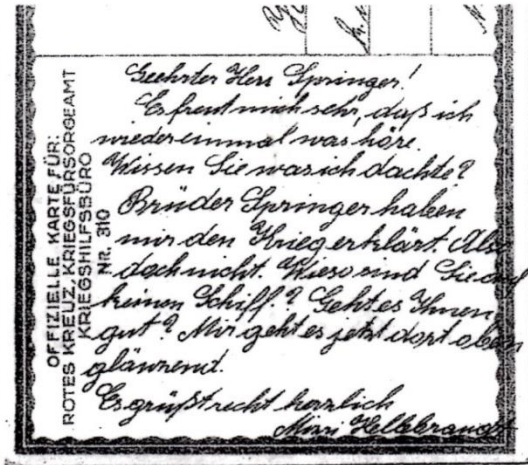 OFFIZIELLE KARTE FÜR:
ROTES KREUZ, KRIEGSFÜRSORGEAMT
KRIEGSHILFSBÜRO
NR. 310
Geehrter Herr Springer!
Es freut mich sehr, daß ich
wieder einmal was höre.
Wissen Sie was ich dachte?
Brüder Springer haben
mir den Krieg erklärt. Also
doch nicht. Wieso sind Sie auf
keinen Schiff.? Geht es Ihnen
gut? Mir geht es jetzt dort oben
glänzend.
Es grüßt recht herzlich
Mizzi